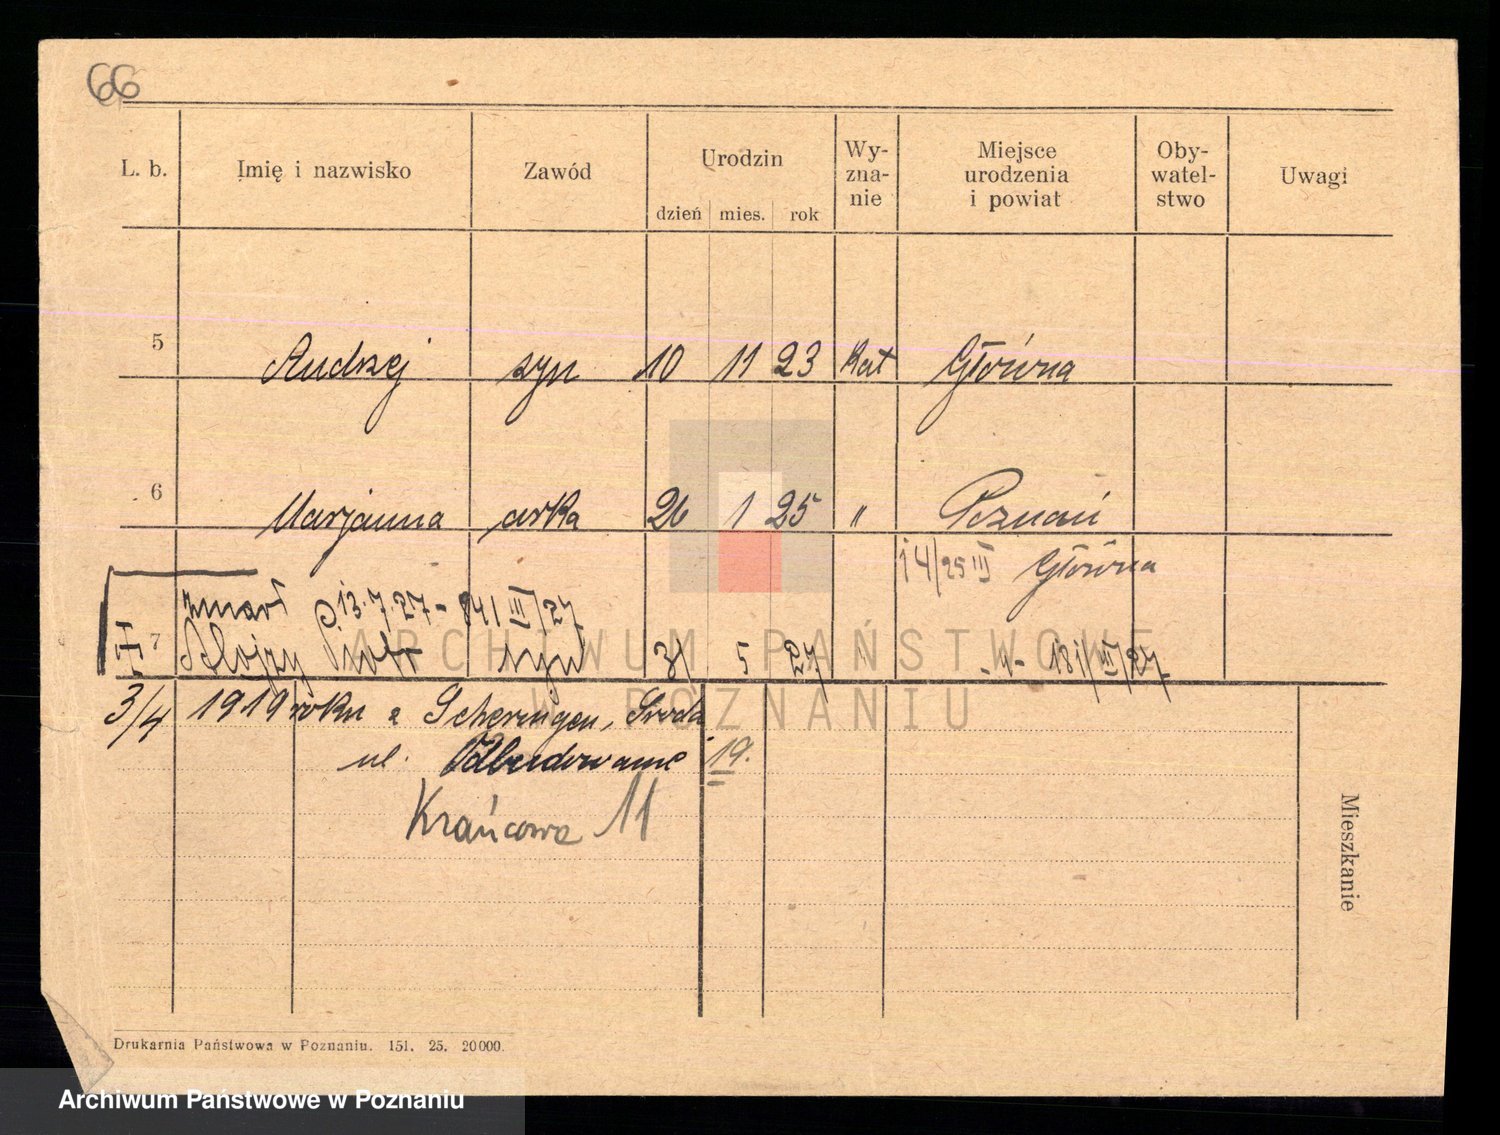 66
L. b. Imię i nazwisko Zawód Urodzin dzień mies. rok Wy-zna-nie Miejsce urodzenia i powiat Oby-watel-stwo Uwagi
5 Andrzej syn 10 11 23 Kat Główna
6 Marjanna córka 26 1 25 " Poznań
14/25 III Główna
zmarł 13.7.27 - 841 III/27
7 Alojzy Piotr syn 31 5 27 " - " - 181/III/27
3/4 1919 roku z Scheringen, Środa
ul. Odbudowanie 19.
Krańcowa 11
Mieszkanie
Drukarnia Państwowa w Poznaniu. 151. 25. 20000.
ARCHIWUM PAŃSTWOWE
W POZNANIU
Archiwum Państwowe w Poznaniu